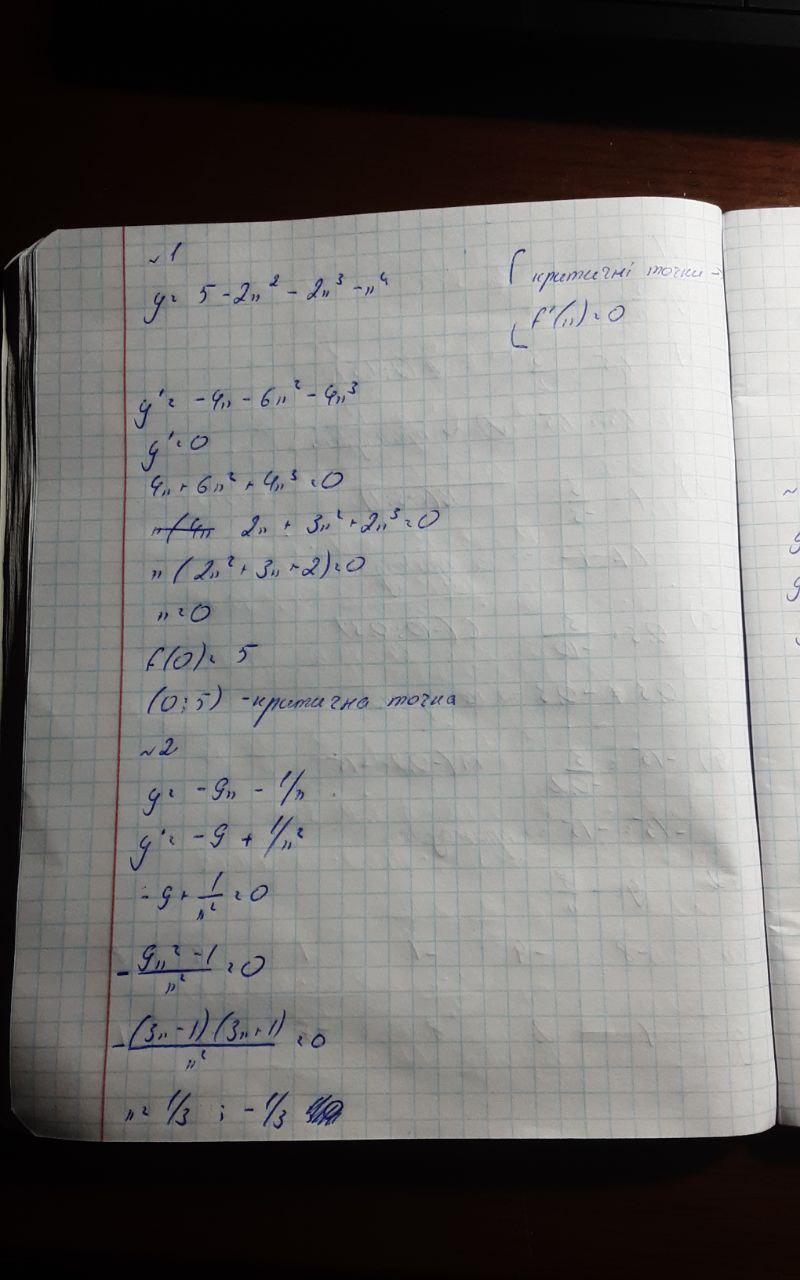 №1
y = 5 - 2x² - 2x³ - x⁴
критичні точки →
f'(x) = 0
y' = -4x - 6x² - 4x³
y' = 0
4x + 6x² + 4x³ = 0
x(4x 2x + 3x² + 2x³ = 0
x(2x² + 3x + 2) = 0
x = 0
f(0) = 5
(0; 5) - критична точка
№2
y = -9x - 1/x
y' = -9 + 1/x²
-9 + 1/x² = 0
- 9x² - 1/x² = 0
- (3x - 1)(3x + 1)/x² = 0
x = 1/3 ; -1/3